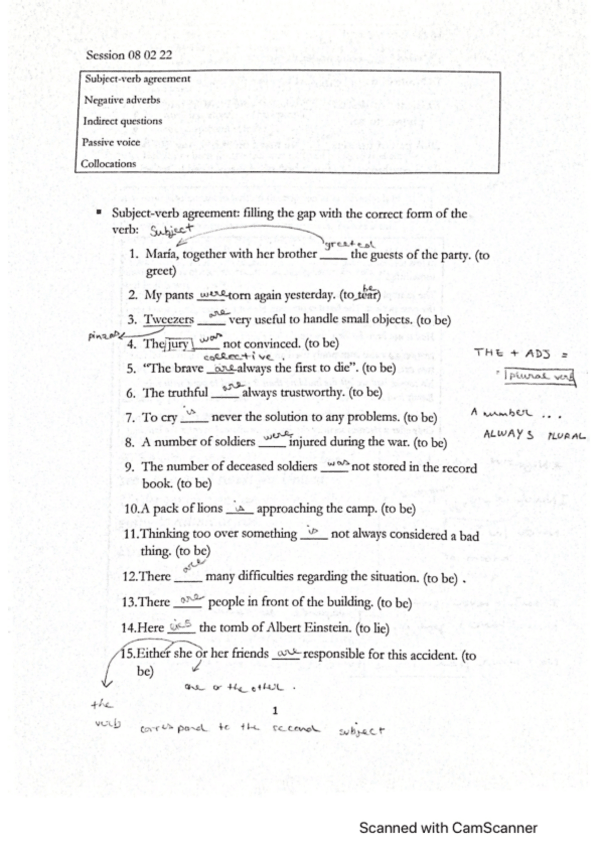 Session 08 02 22
Subject-verb agreement
Negative adverbs
Indirect questions
Passive voice
Collocations
▪ Subject-verb agreement: filling the gap with the correct form of the
verb: Subject
greeted
1. María, together with her brother ____ the guests of the party. (to
greet)
be
2. My pants were torn again yesterday. (to tear)
3. Tweezers are very useful to handle small objects. (to be)
4. The jury was not convinced. (to be)
collective.
5. “The brave are always the first to die”. (to be)
THE + ADJ =
plural verb
6. The truthful are always trustworthy. (to be)
7. To cry is never the solution to any problems. (to be)
A number ...
ALWAYS PLURAL
8. A number of soldiers were injured during the war. (to be)
9. The number of deceased soldiers was not stored in the record
book. (to be)
10.A pack of lions is approaching the camp. (to be)
11.Thinking too over something is not always considered a bad
thing. (to be)
12.There are many difficulties regarding the situation. (to be) .
13.There are people in front of the building. (to be)
14.Here the tomb of Albert Einstein. (to lie)
15.Either she or her friends are responsible for this accident. (to
be)
one or the other.
the
verb correspond to the second subject
1
Scanned with CamScanner